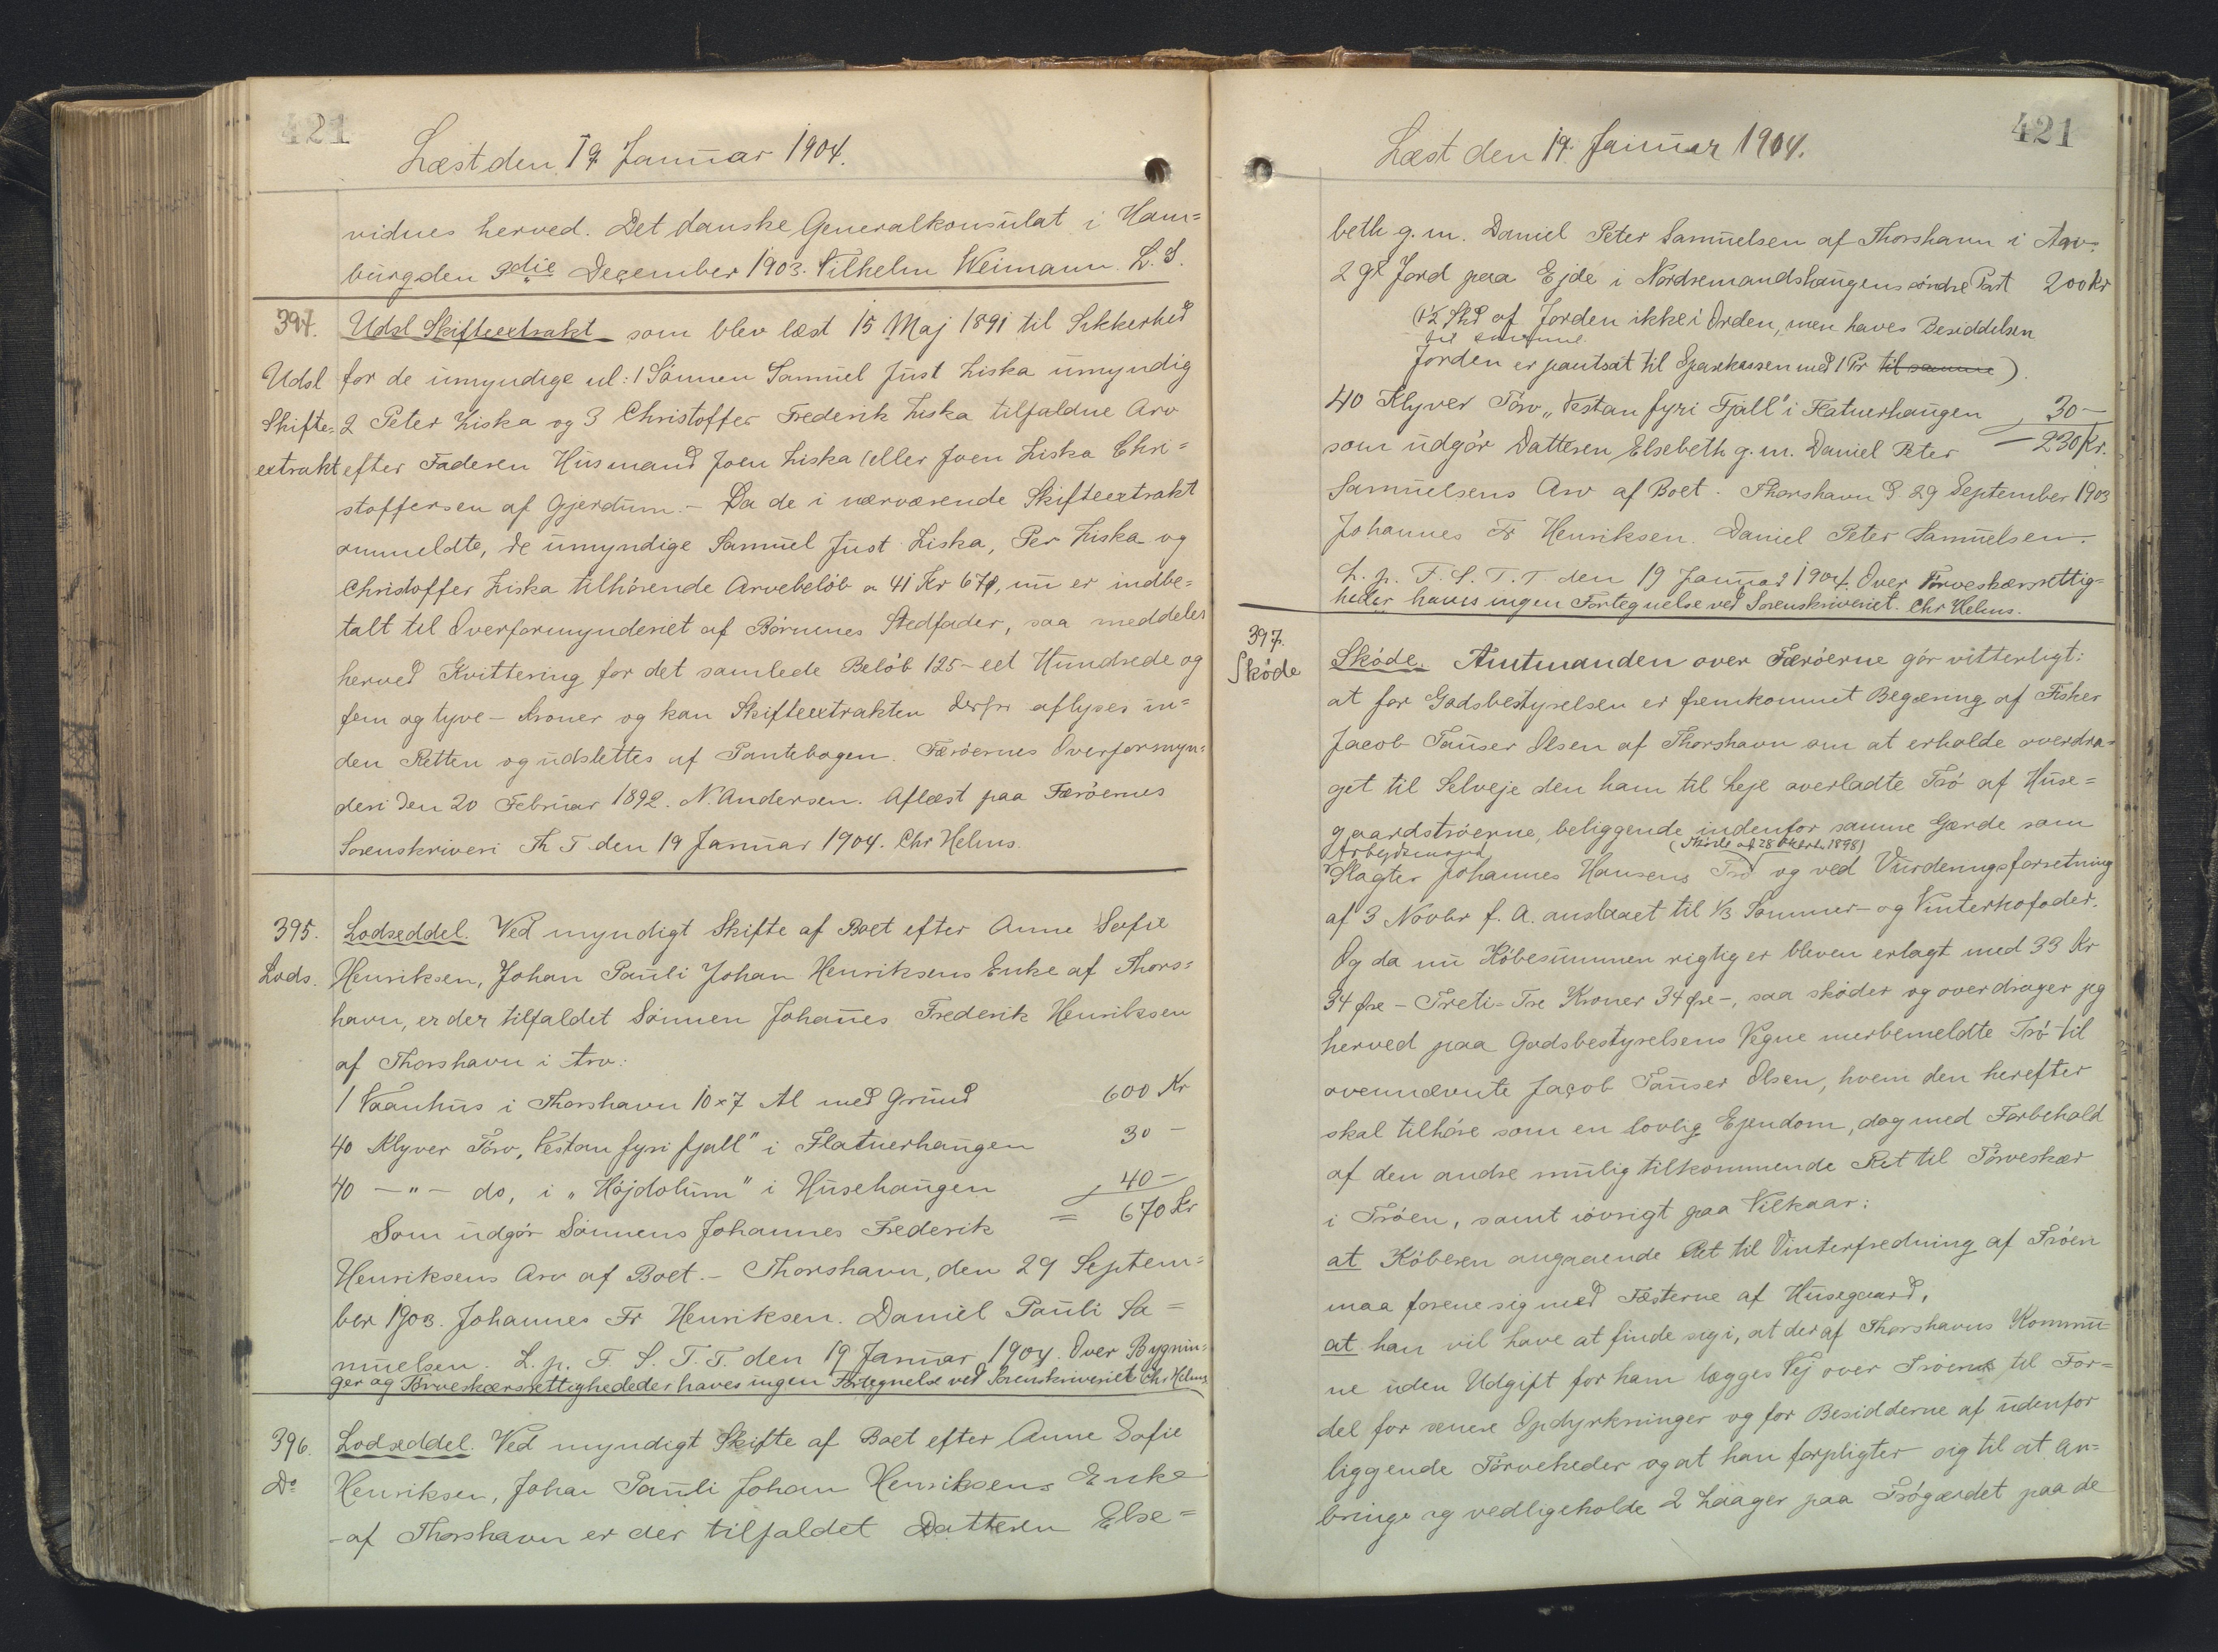 421
Læst den 19 Januar 1904.
vidnes herved. Det danske Generalkonsulat i Ham=
burg den 9die December 1903. Vilhelm Weimann. L. S.
394.
Udsl Skifteextrakt
Udsl Skifteextrakt som blev læst 15 Maj 1891 til Sikkerhed
for de umyndige nl: 1 Sønnen Samuel Just Ziska umyndig
2 Peter Ziska og 3 Christoffer Frederik Ziska tilfaldne Arv
efter Faderen Husmand Joen Ziska (eller Joen Ziska Chri=
stoffersen af Gjerdum. - Da de i nærværende Skifteextrakt
ommeldte, de umyndige Samuel Just Ziska, Per Ziska og
Christoffer Ziska tilhørende Arvebeløb a 41 Kr 67, nu er indbe=
talt til Overformynderiet af Børnenes Stedfader, saa meddeles
herved Kvittering for det samlede Beløb 125 - eet Hundrede og
fem og tyve - Kroner og kan Skifteextrakten derfor aflyses in=
den Retten og udslettes af Pantebogen. Færøernes Overformyn=
deri den 20 Februar 1892. N. Andersen. Aflæst paa Færøernes
Sorenskriveri Th T den 19 Januar 1904. Chr Helms.
395.
Lods.
Lodseddel. Ved myndigt Skifte af Boet efter Anne Sofie
Henriksen, Johan Pauli Johan Henriksens Enke af Thors=
havn, er der tilfaldet Sønnen Johanes Frederik Henriksen
af Thorshavn i Arv:
1 Vaanhus i Thorshavn 10 x 7 Al med Grund 600 Kr
40 Klyver Tørv, Vestan fyri fjall" i Flatnerhaugen 30 -
40 - " - do, i "Højdolum" i Husehaugen 40 -
Som udgør Sønnens Johannes Frederik = 670 Kr
Henriksens Arv af Boet. - Thorshavn, den 29 Septem=
ber 1903. Johannes Fr Henriksen. Daniel Pauli Sa=
muelsen. L. p. F. S. T. T. den 19 Januar 1904. Over Bygnin=
ger og Tørveskærsrettighededer haves ingen Fortegnelse ved Sorenskriveriet Chr Helms
396.
Do
Lodseddel. Ved myndigt Skifte af Boet efter Anne Sofie
Henriksen, Johan Pauli Johan Henriksens Enke
-af Thorshavn er der tilfaldet Datteren Else=
421
Læst den 19. Januar 1904.
beth g. m. Daniel Peter Samuelsen af Thorshavn i Arv:
2 gl Jord paa Ejde i Nordremandshaugens søndre Part 200 Kr
(1½ Skd af Jorden ikke i Orden, men haves Besiddelsen
til samme
Jorden er pantsat til Sparekassen med 1 Pr til samme)
40 Klyver Tørv "Vestan fyri Fjall" i Flatnerhaugen 30 -
som udgør Datteren Elsebeth g. m. Daniel Peter - 230 Kr.
Samuelsens Arv af Boet. Thorshavn D. 29 September 1903
Johannes Fr Henriksen. Daniel Peter Samuelsen.
L. p. F. S. T. T. den 19 Januar 1904. Over Tørveskærsrettig=
heder haves ingen Fortegnelse ved Sorenskriveriet. Chr Helms.
397.
Skøde
Skøde. Amtmanden over Færøerne gør vitterligt:
at for Godsbestyrelsen er fremkommet Begæring af Fisker
Jacob Pauser Olsen af Thorshavn om at erholde overdra=
get til Selveje den ham til Leje overladte Trø af Huse=
gaardstrøerne, beliggende indenfor samme Gærde som
Arbejdsmand (Skøde af 28 Oktbr. 1898)
Slagter Johannes Hansens Trø og ved Vurderingsforretning
af 3 Novbr f. A. anslaaet til 1/3 Sommer- og Vinterkofoder.
Og da nu Købesummen rigtig er bleven erlagt med 33 Kr
34 Øre - Treti-Tre Kroner 34 Øre -, saa skøder og overdrager jeg
herved paa Godsbestyrelsens Vegne merbemeldte Trø til
ovennævnte Jacob Pauser Olsen, hvem den herefter
skal tilhøre som en lovlig Ejendom, dog med Forbehold
af den andre mulig tilkommende Ret til Tørveskær
i Trøen, samt iøvrigt paa Vilkaar:
at Køberen angaaende Ret til Vinterfredning af Trøen
maa forene sig med Fæsterne af Husegaard,
at han vil have at finde sig i, at der af Thorshavns Kommu=
ne uden Udgift for ham lægges Vej over Trøerne til For=
del for senere Opdyrkninger og for Besidderne af udenfor
liggende Tørveheder og at han forpligter sig til at an=
bringe og vedligeholde 2 Laager paa Trøgærdet paa de